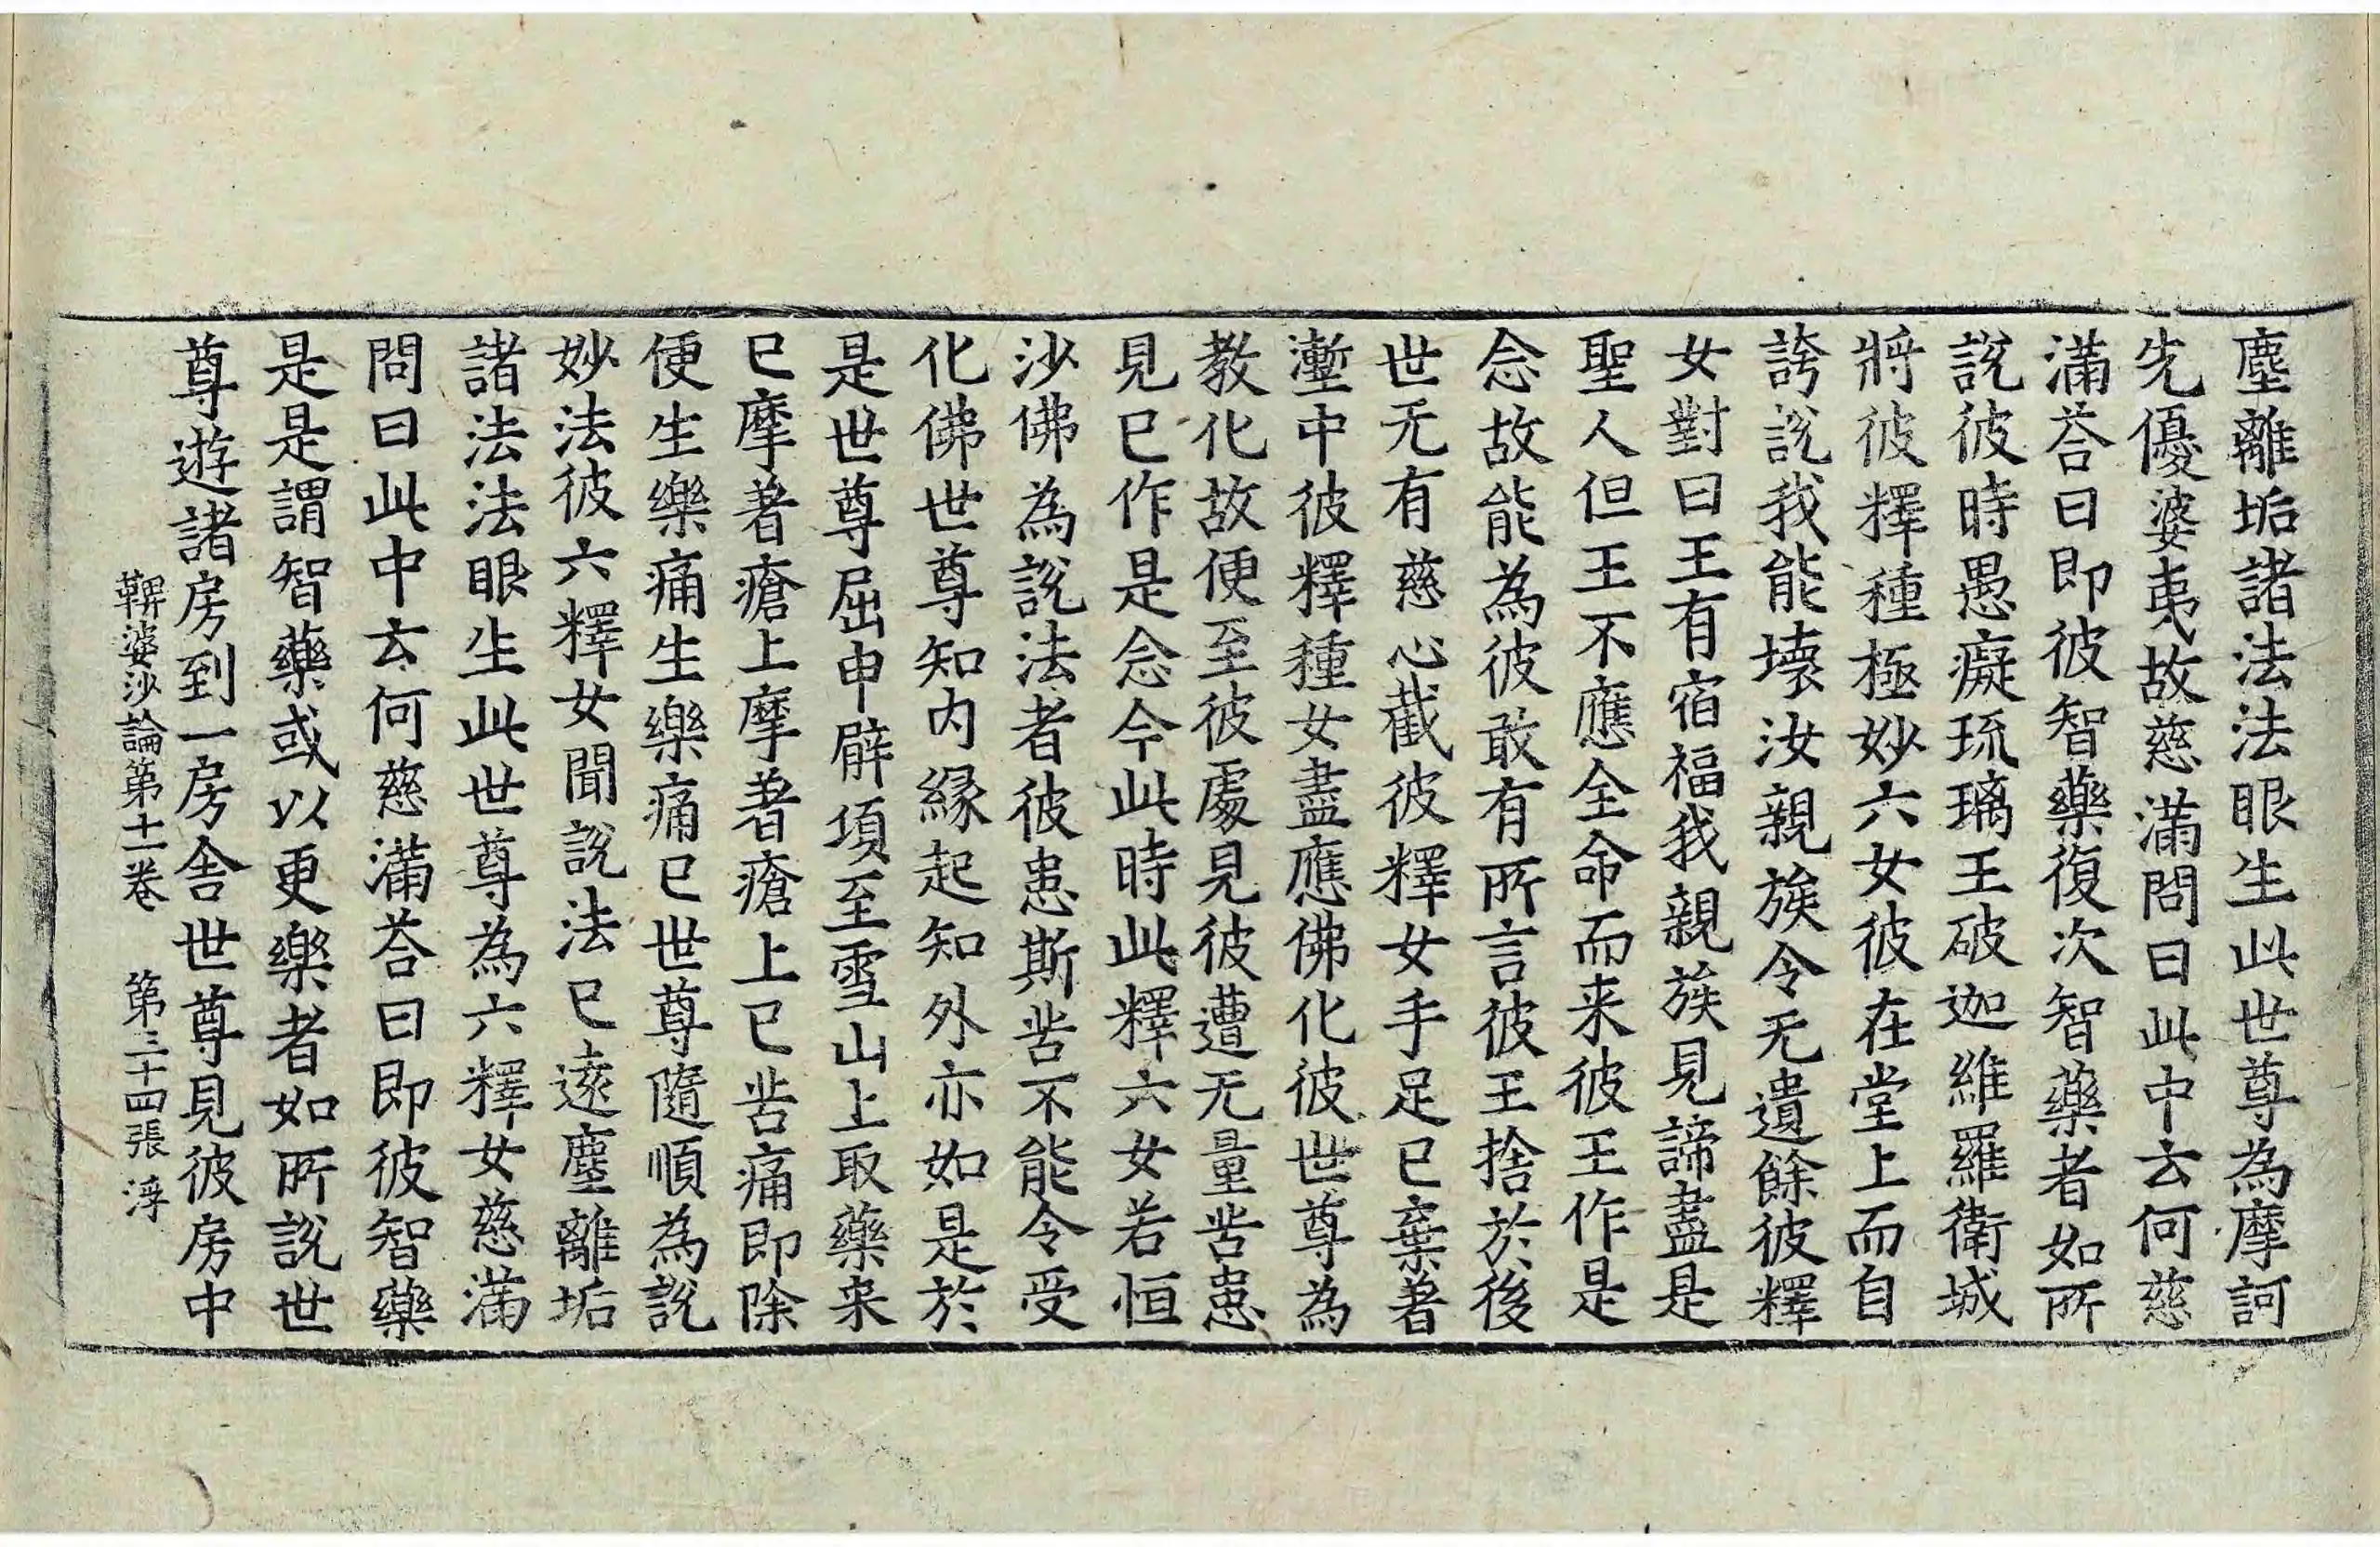 塵離垢諸法法眼生此世尊為摩訶
先優婆夷故慈滿問曰此中云何慈
滿荅曰即彼智藥復次智藥者如所
說彼時愚癡琉璃王破迦維羅衛城
將彼釋種極妙六女彼在堂上而自
誇說我能壞汝親族令无遺餘彼釋
女對曰王有宿福我親族見諦盡是
聖人但王不應全命而来彼王作是
念故能為彼敢有所言彼王捨於後
世无有慈心截彼釋女手足已棄著
壍中彼釋種女盡應佛化彼世尊為
教化故便至彼處見彼遭无量苦患
見已作是念今此時此釋六女若恒
沙佛為說法者彼患斯苦不能令受
化佛世尊知內緣起知外亦如是於
是世尊屈申臂項至雪山上取藥来
已摩著瘡上摩著瘡上已苦痛即除
便生樂痛生樂痛已世尊隨順為說
妙法彼六釋女聞說法已遠塵離垢
諸法法眼生此世尊為六釋女慈滿
問曰此中云何慈滿荅曰即彼智藥
是是謂智藥或以更樂者如所說世
尊遊諸房到一房舍世尊見彼房中
鞞婆沙論第十一卷 第三十四張 浮